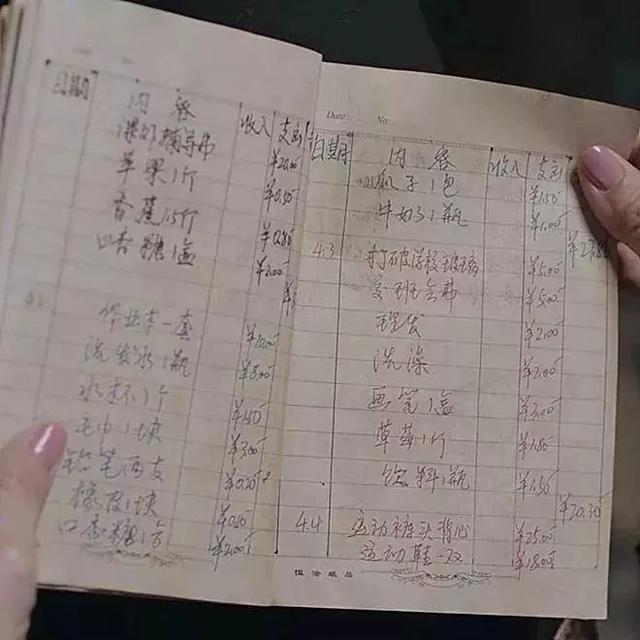 日期 内容 收入 支出
课外辅导书 ¥20.00
苹果1斤 ¥0.50
香蕉1.5斤 ¥0.80
口香糖1盒 ¥2.00
作业本一套 ¥10.00
洗发水1瓶 ¥8.00
水杯1个 ¥1.50
毛巾1块 ¥3.00
铅笔两支
橡皮1块
口香糖1 ¥2.00
Date No
日期 内容 收入 支出
瓜子1包 ¥1.50
牛奶1瓶 ¥1.00
4.3 打破学校玻璃 ¥5.00
交班会费 ¥5.00
理发 ¥2.00
洗澡 ¥2.00
画笔1盒 ¥3.00
草莓1斤 ¥1.80
饮料1瓶 ¥1.50
¥20.30
4.4 运动裤头背心 ¥25.00
运动鞋一双 ¥18.00
恒洽纸品